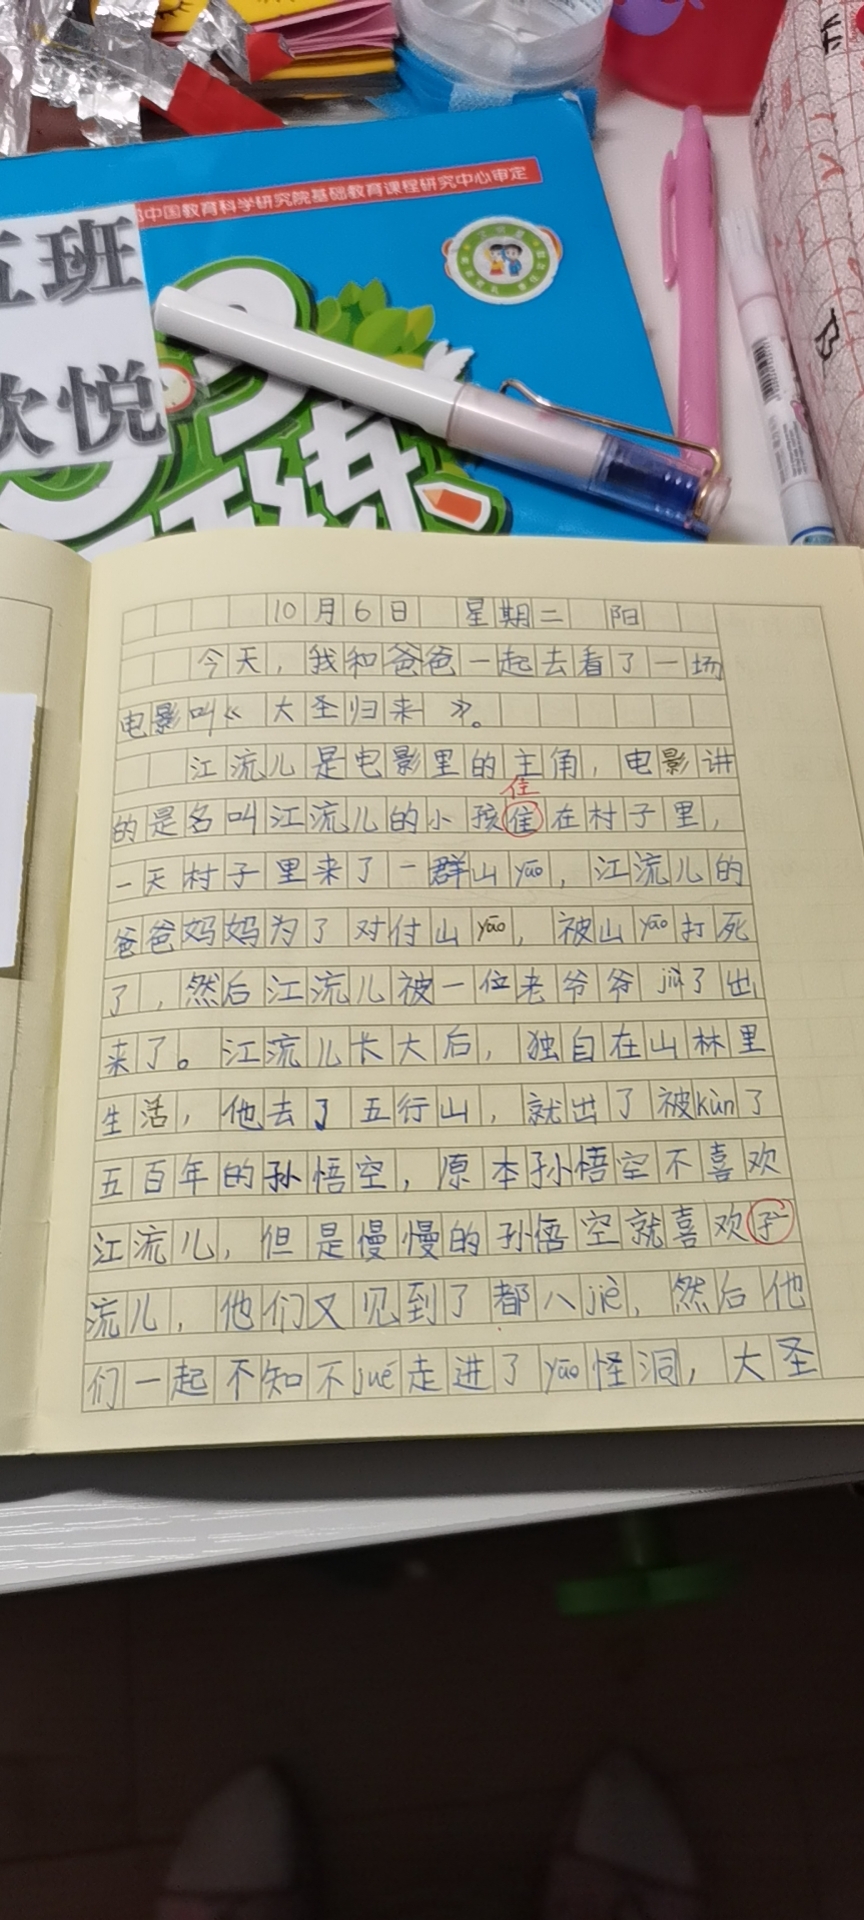 中国教育科学研究院基础教育课程研究中心审定
班
悦
练
10月6日 星期二 阳
今天，我和爸爸一起去看了一场
电影叫《大圣归来》。
江流儿是电影里的主角，电影讲
住
的是名叫江流儿的小孩住在村子里，
一天村子里来了一群山yāo，江流儿的
爸爸妈妈为了对付山yāo，被山yāo打死
了，然后江流儿被一位老爷爷jiù了出
来了。江流儿长大后，独自在山林里
生活，他去了五行山，就出了被kùn了
五百年的孙悟空，原本孙悟空不喜欢
江流儿，但是慢慢的孙悟空就喜欢
流儿，他们又见到了都八jiè，然后他
们一起不知不jué走进了yāo怪洞，大圣